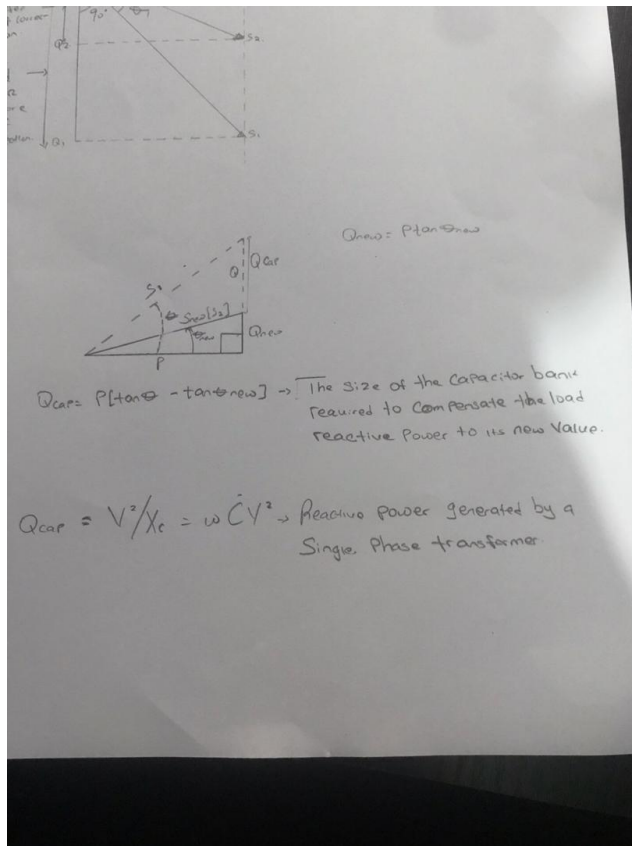 90°
θ1
Q2
S2
Q1
S1
Qnew = Ptanθnew
Q
Qcap
S
Snew[S2]
θnew
Qnew
P
Qcap = P[tanθ - tanθnew] → The Size of the Capacitor bank
required to compensate the load
reactive Power to its new Value.
Qcap = V²/Xc = ωCV² → Reactive power generated by a
Single Phase transformer.